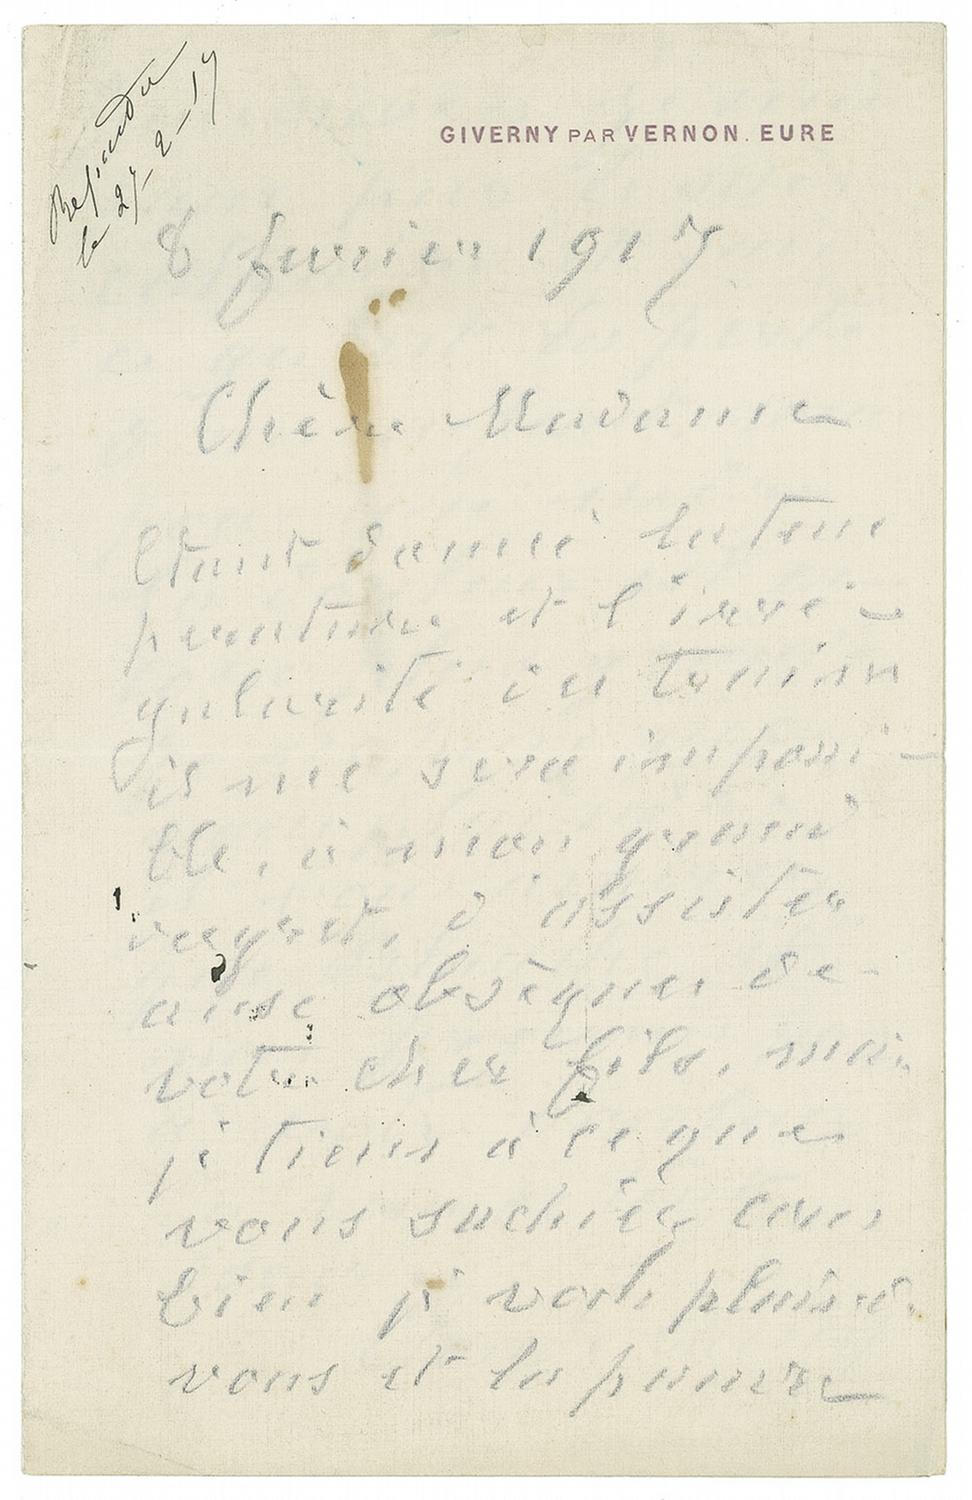 Répondu
le 27-2-17
GIVERNY PAR VERNON. EURE
8 fevrier 1917
Chère Madame
Etant donné la tem
perature et l'irré-
gularité des trains
il me sera impossi-
ble, à mon grand
regret, d'assister
aux obsèques de
votre cher fils, mais
je tiens à ce que
vous sachiez com
bien je vous plains
vous et la pauvre